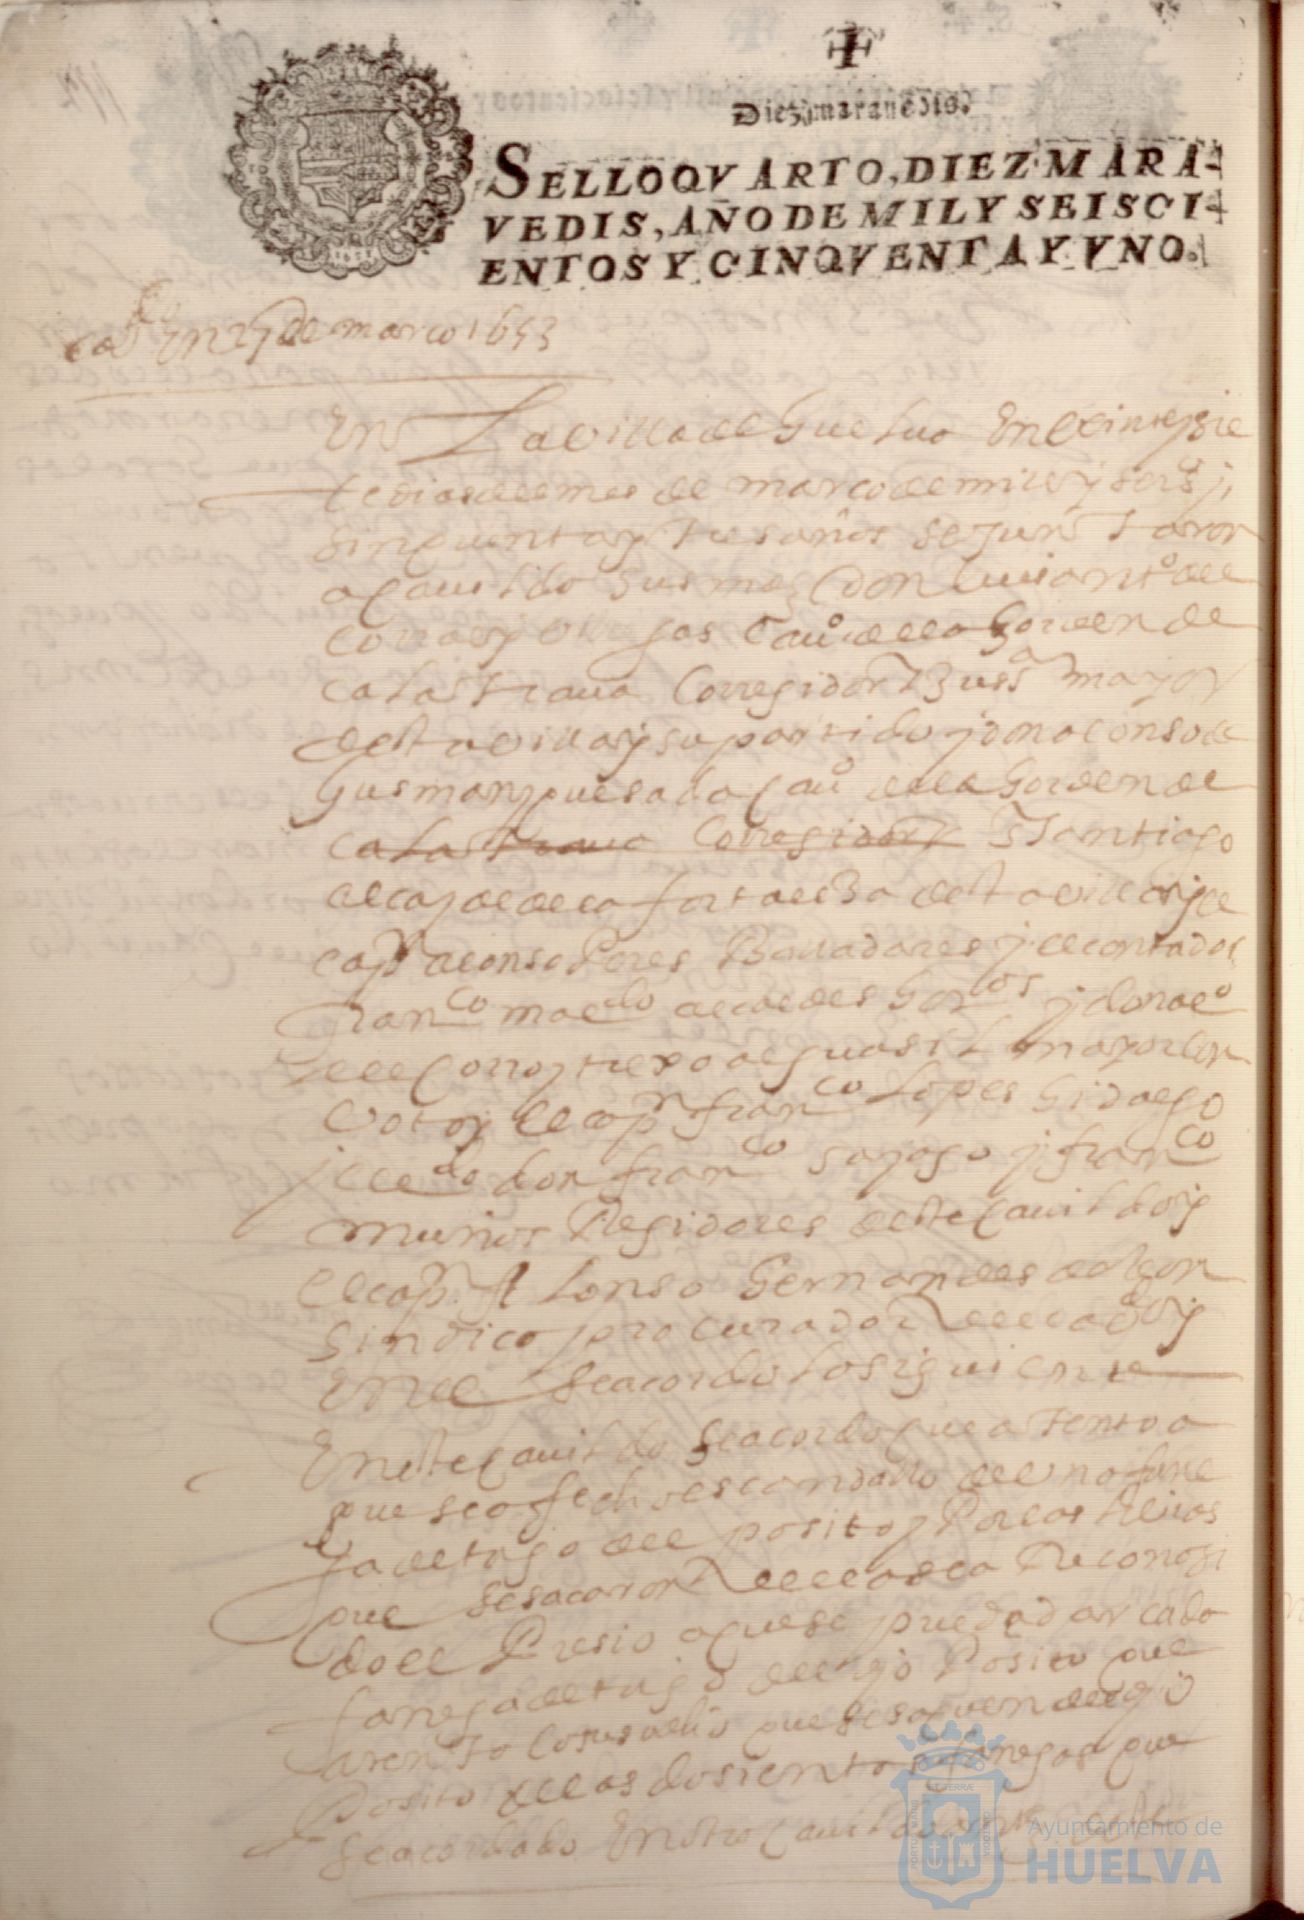 Diez maravedis.
SELLO QVARTO, DIEZ MARA-
VEDIS, AÑO DE MIL Y SEISCI-
ENTOS Y CINQVENTA Y VNO.
cabdo En 27 de março 1653
En La villa de Guelua En Veinte y sie
te dias del mes de março de mill y seisos y
sinquenta y tres años se Juntaron
a cauildo sus mds don Luis anto del
corral y cauo de la horden de
calatraua Corregidor Justa mayor
desta villa y su partido y don alonso de
Gusman quesada cauo de la horden de
calatraua Corregidor Santiago
alcayde de la fortalesa desta villa y el
capn alonso Peres Valladares y el contador
franco maldo alcaldes horos y don alo
del Corro y trexo alguasil mayor con
Voto y el capn franco Lopes hidalgo
y el ldo don franco sayago y franco
muños Regidores deste cauildo y
el capn Alonso Hernandes de leon
Sindico procurador del cabdo y
En el se acordo lo siguiente
En este cauildo se acordo que atento a
que se a fecho escandallo de Una fane
ga de trigo del posito y Por las
que se sacaron della sea Reconosi
do el Presio a que se puede dar cada
fanega de trigo del dho Posito que
que se saquen del dho
Posito de las dosientas fanegas que
se acordado En otro cauildo
Ayuntamiento de
HUELVA